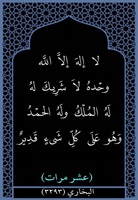 لا إِلهَ إِلاَّ اللَّه
وحْدهُ لاَ شَرِيكَ لَهُ
لَهُ المُلْكُ وَلَهُ الحَمْدُ
وَهُو عَلَى كُلِّ شَيءٍ قَدِيرٌ
(عشر مرات)
البخاري (٣٢٩٣)